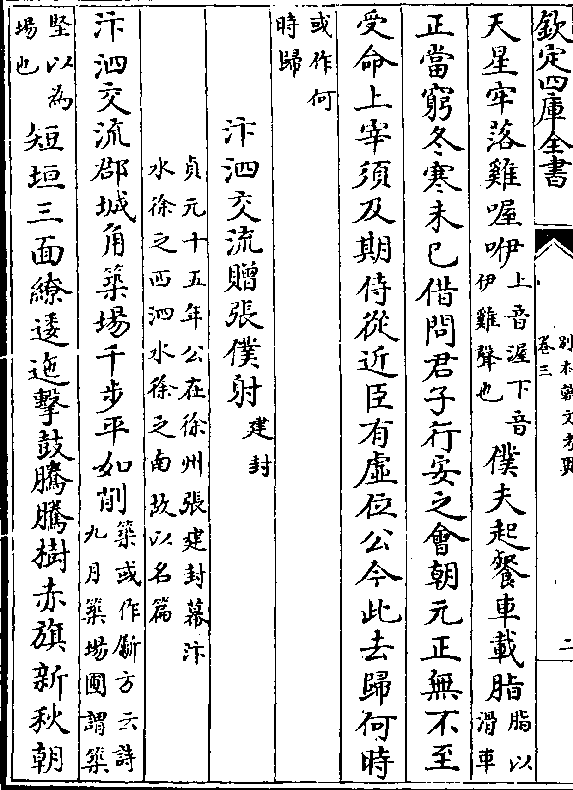 欽定四庫全書
別本韓文考異
卷三
二
天星牢落雞喔咿
上音渥下音
伊雞聲也
僕夫起餐車載脂
脂以
滑車
正當窮冬寒未已借問君子行安之會朝元正無不至
受命上宰須及期侍從近臣有虛位公今此去歸何時
或作何
時歸
汴泗交流贈張僕射
建封
貞元十五年公在徐州張建封幕汴
水徐之西泗水徐之南故以名篇
汴泗交流郡城角築場千步平如削
築或作斸方云詩
九月築場圃謂築
堅以為
場也
短垣三面繚逶迤擊鼓騰騰樹赤旗新秋朝